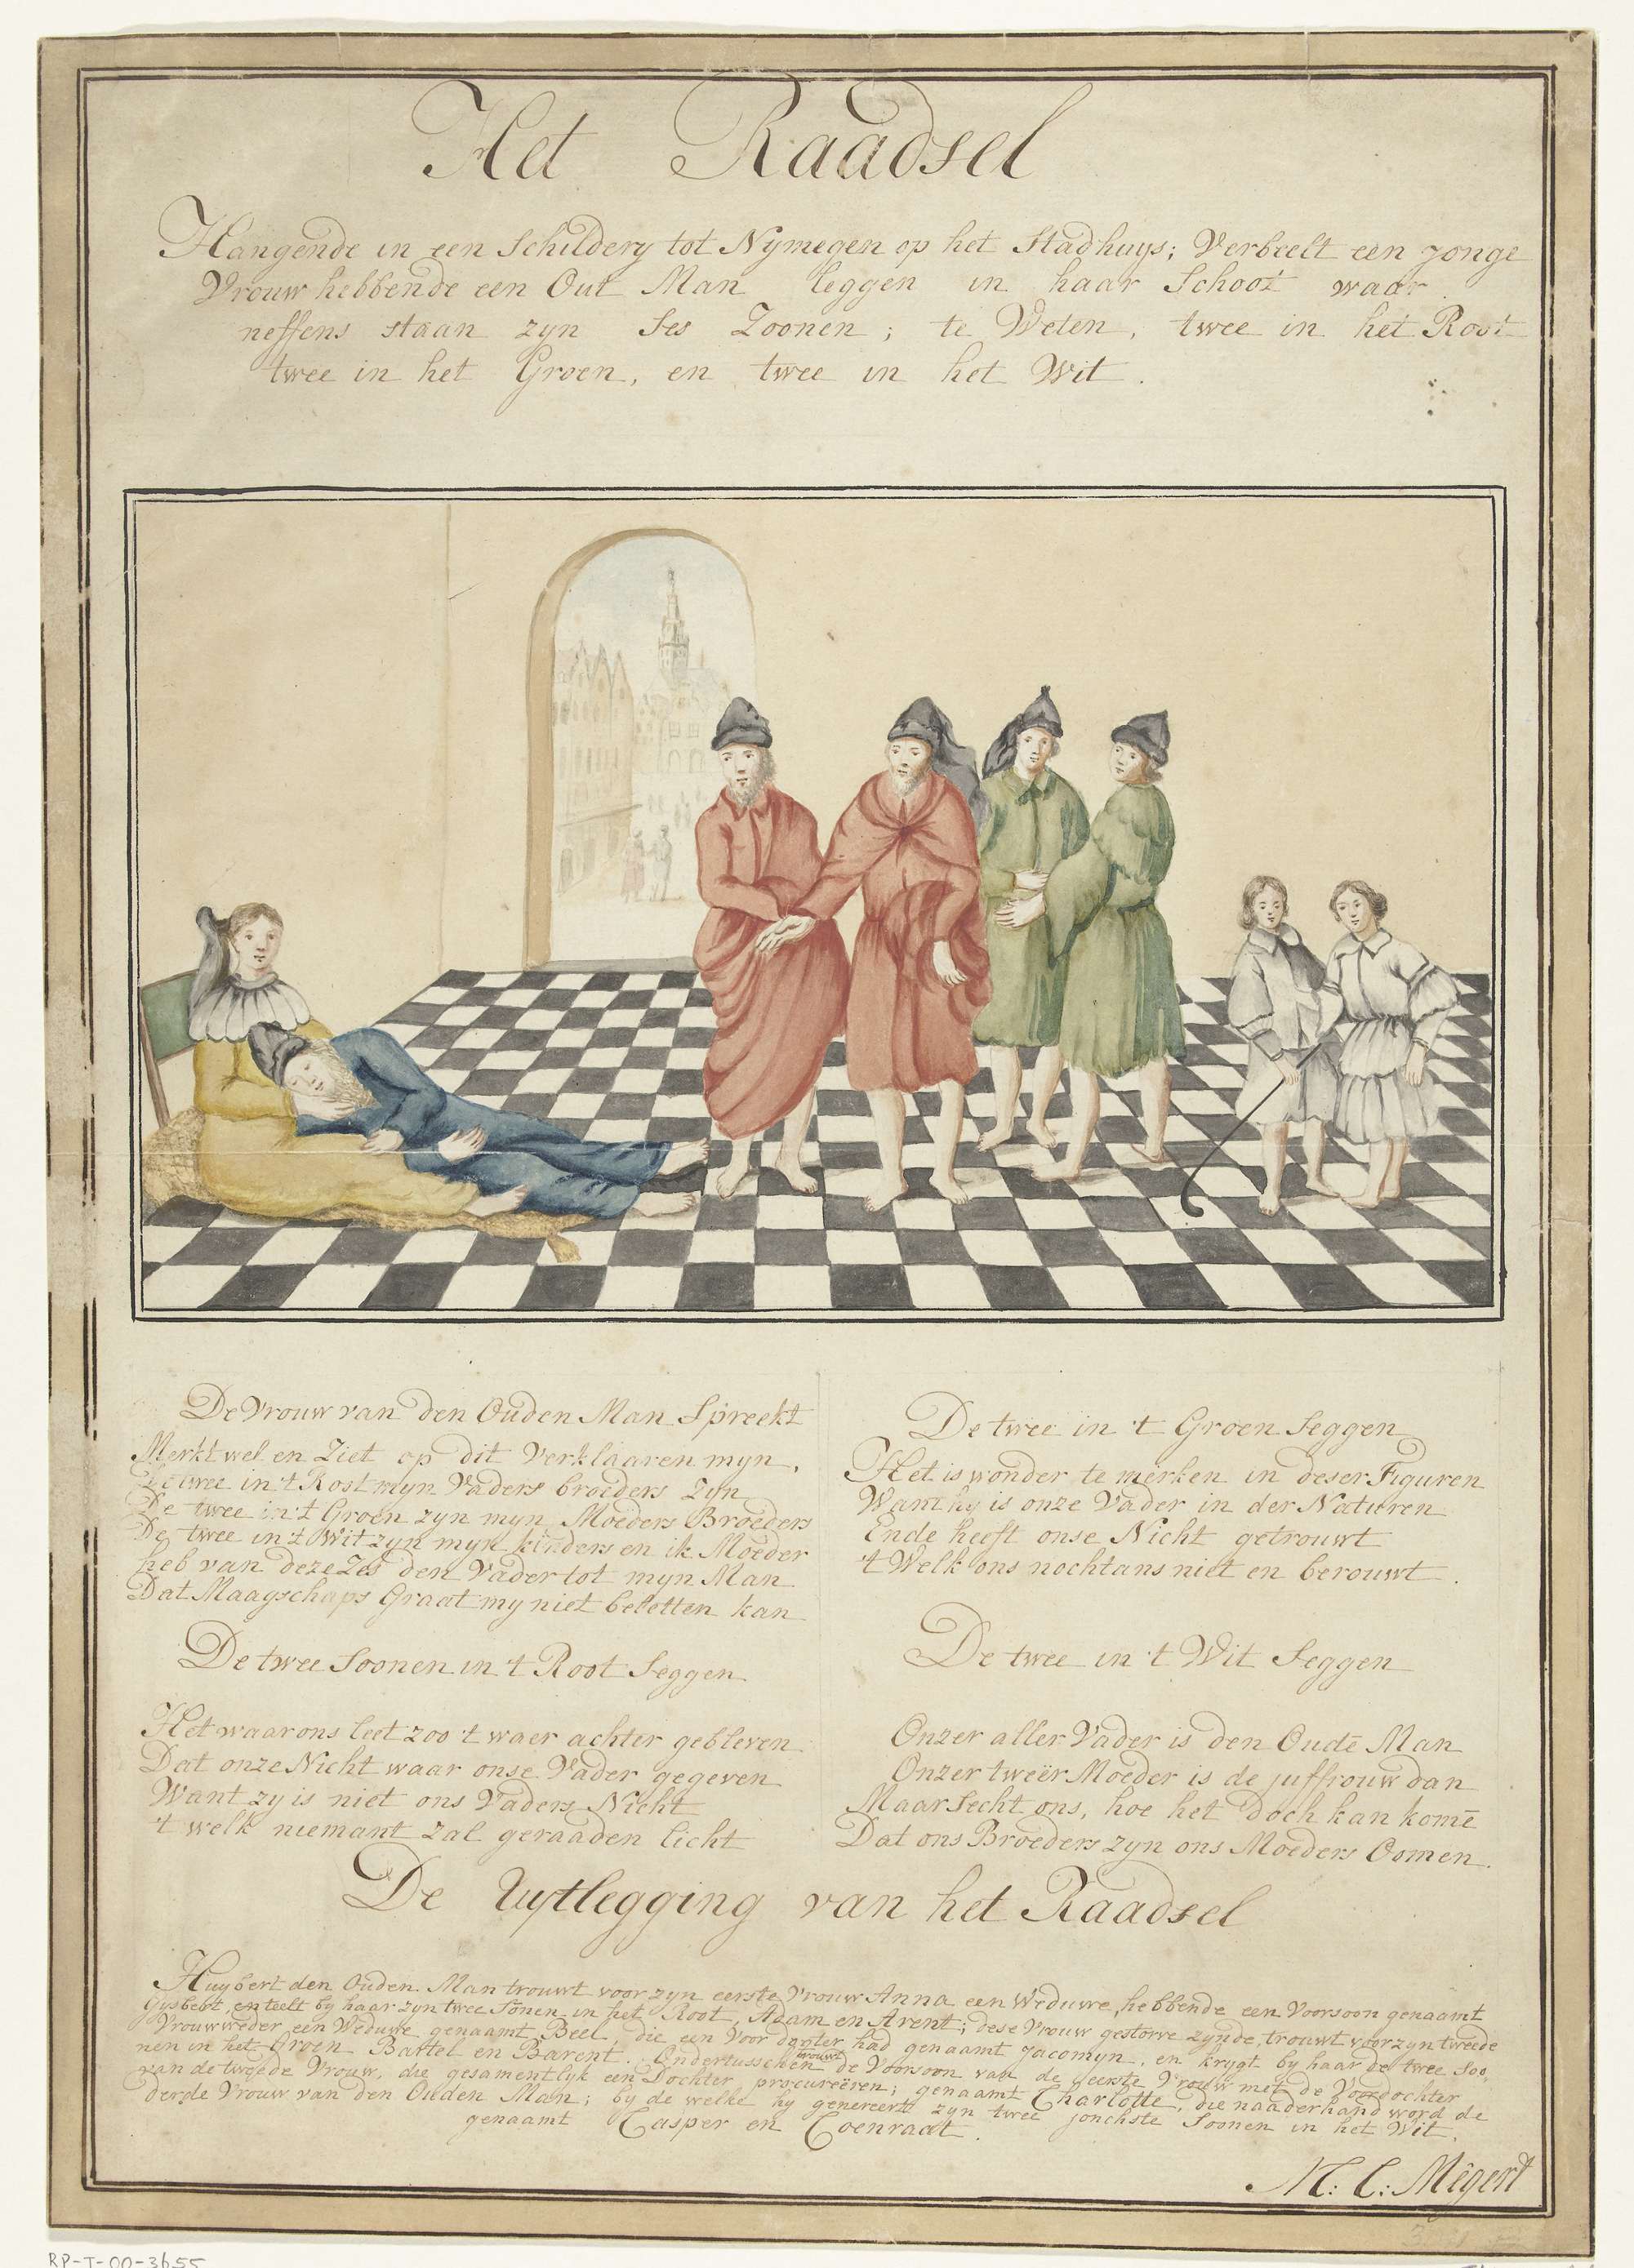 Het Raadsel
Hangende in een Schildery tot Nymegen op het Stadhuys; Verbeelt een jonge
Vrouw hebbende een Out Man leggen in haar Schoot waar
neffens staan zyn Ses Zoonen; te Weten, twee in het Root
twee in het Groen, en twee in het Wit.
De Vrouw van den Ouden Man Spreekt
Merkt wel en Ziet op dit Verklaaren myn,
De twee in 't Root myn Vaders broeders Zyn
De twee in 't Groen zyn myn Moeders Broeders
De twee in 't Wit zyn myn kinders en ik Moeder
heb van deze Zes den Vader tot myn Man
Dat Maagschaps Graat my niet beletten kan
De twee Soonen in 't Root Seggen
Het waar ons leet zoo 't waer achter gebleven
Dat onze Nicht waar onse Vader gegeven
Want zy is niet ons Vaders Nicht
't welk niemant zal geraaden licht
De twee in 't Groen Seggen
Het is wonder te merken in deser Figuren
Want hy is onze Vader in der Naturen
Ende heeft onse Nicht getrouwt
't Welk ons nochtans niet en berouwt.
De twee in 't Wit Seggen
Onzer aller Vader is den Oude Man
Onzer tweër Moeder is de juffrouw dan
Maar Secht ons, hoe het doch kan komē
Dat ons Broeders zyn ons Moeders Oomen.
De Uytlegging van het Raadsel
Huybert den Ouden Man trouwt voor zyn eerste Vrouw Anna een Weduwe, hebbende een Voorsoon genaamt
Gysbert, en teelt by haar zyn twee Sonen in het Root, Adam en Arent; dese Vrouw gestorve zynde, trouwt voor zyn tweede
Vrouw weder een Weduwe genaamt Beel, die een Voor dogter had genaamt Jacomyn, en krygt by haar de twee Soo-
nen in het Groen Bartel en Barent. Ondertusschen trouwt de Voorsoon van de eerste Vrouw met de Voordochter
van de tweede Vrouw, die gesamentlyk een Dochter procureëren; genaamt Charlotte, die naaderhand word de
derde Vrouw van den Ouden Man; by de welke hy genereert zyn twee jonchste Soonen in het Wit.
genaamt Casper en Coenraat.
M: C: Mêgert
RP-T-00-3655